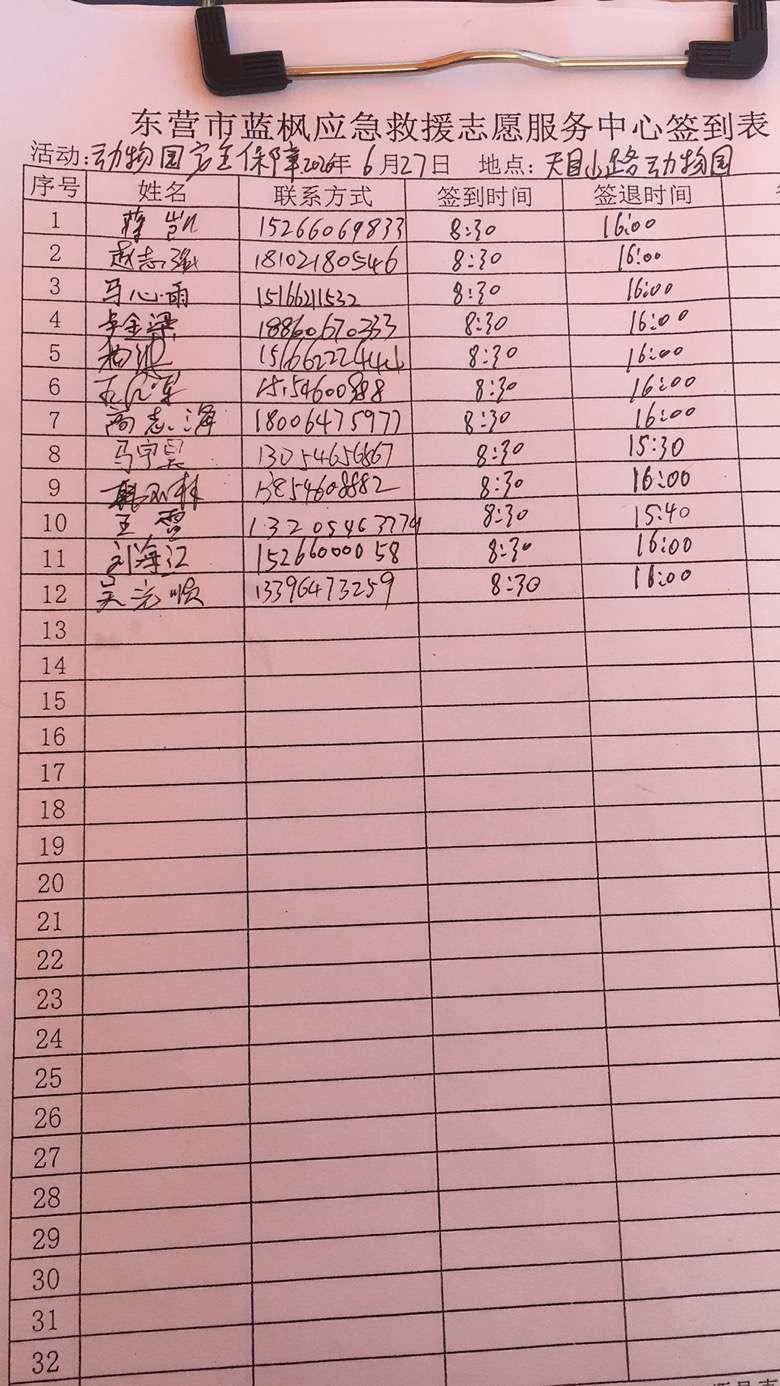 东营市蓝枫应急救援志愿服务中心签到表
活动:动物园安全保障2026年 6月27日 地点:天目山路动物园
序号 姓名 联系方式 签到时间 签退时间
1 凯 15266069833 8:30 16:00
2 赵志强 18102180546 8:30 16:00
3 马心雨 15166211532 8:30 16:00
4 金梁 18860670333 8:30 16:00
5 8:30 16:00
6 8:30 16:00
7 尚志海 18006475977 8:30 16:00
8 马宇昊 13054656867 8:30 15:30
9 8:30 16:00
10 王雪 8:30 15:40
11 刘海江 15266000058 8:30 16:00
12 吴 顺 13396473259 8:30 16:00
13
14
15
16
17
18
19
20
21
22
23
24
25
26
27
28
29
30
31
32